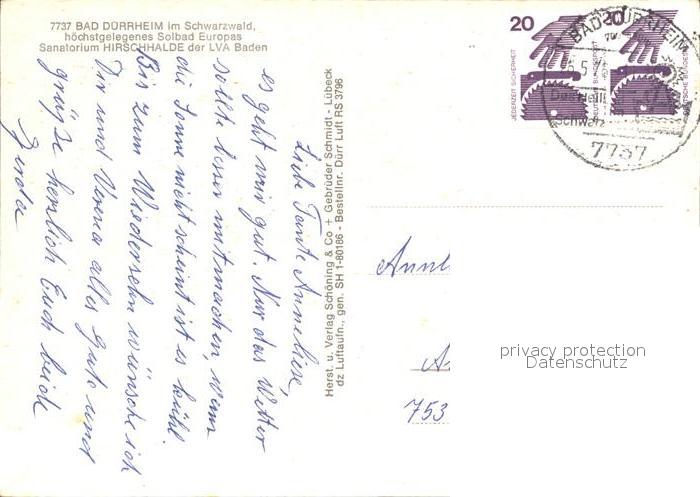 7737 BAD DÜRRHEIM im Schwarzwald,
höchstgelegenes Solbad Europas
Sanatorium HIRSCHHALDE der LVA Baden
Liebe Tante Anneliese,
es geht mir gut. Nur das Wetter
sollte besser mitmachen, wenn
die Sonne nicht scheint ist es kühl.
Bis zum Wiedersehn wünsche ich
Dir und Verena alles Gute und
grüße herzlich Euch beide
Gerda
Herst. u. Verlag Schöning & Co + Gebrüder Schmidt - Lübeck
dz Luftaufn., gen. SH 1-80186 - Bestellnr. Dürr Luft RS 3796
20
JEDERZEIT SICHERHEIT
20
DEUTSCHE BUNDESPOST
BAD DÜRRHEIM
7737
Annel
753
privacy protection
Datenschutz